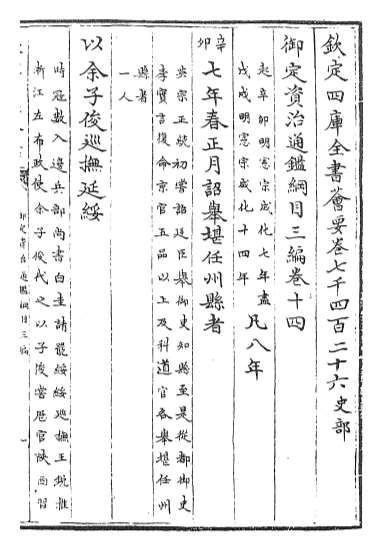 欽定四庫全書薈要卷七千四百二十六史部
御定資治通鑑綱目三編卷十四
起辛卯明憲宗成化七年盡
戊戌明憲宗成化十四年
凡八年
辛卯
七年春正月詔舉堪任州縣者
英宗正統初嘗詔廷臣舉御史知縣至是從都御史
李賓言復命京官五品以上及科道官各舉堪任州
縣者
一人
以余子俊巡撫延綏
時寇數入邊兵部尚書白圭請罷綏綏巡撫王銳推
浙江左布政使余子俊代之以子俊嘗歷官陝西習